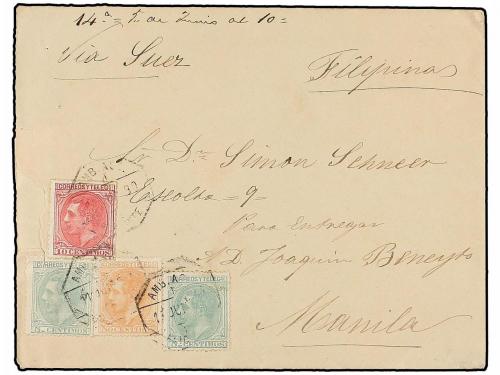 14ª = 1 de Junio al 10 =
Via Suez
Filipinas
Sr. Dn. Simon Schneer
Escolta = 9 =
Para Entregar
A D. Joaquim Beneyto
Manila
AMB.A
CORREOS Y TELEGS
10 CENTIMOS
CORREOS Y TELEGS
CORREOS Y TELEGS
CORREOS Y TELEGS
AMB.A
5 CENTIMOS
CENTIMOS
5 CENTIMOS